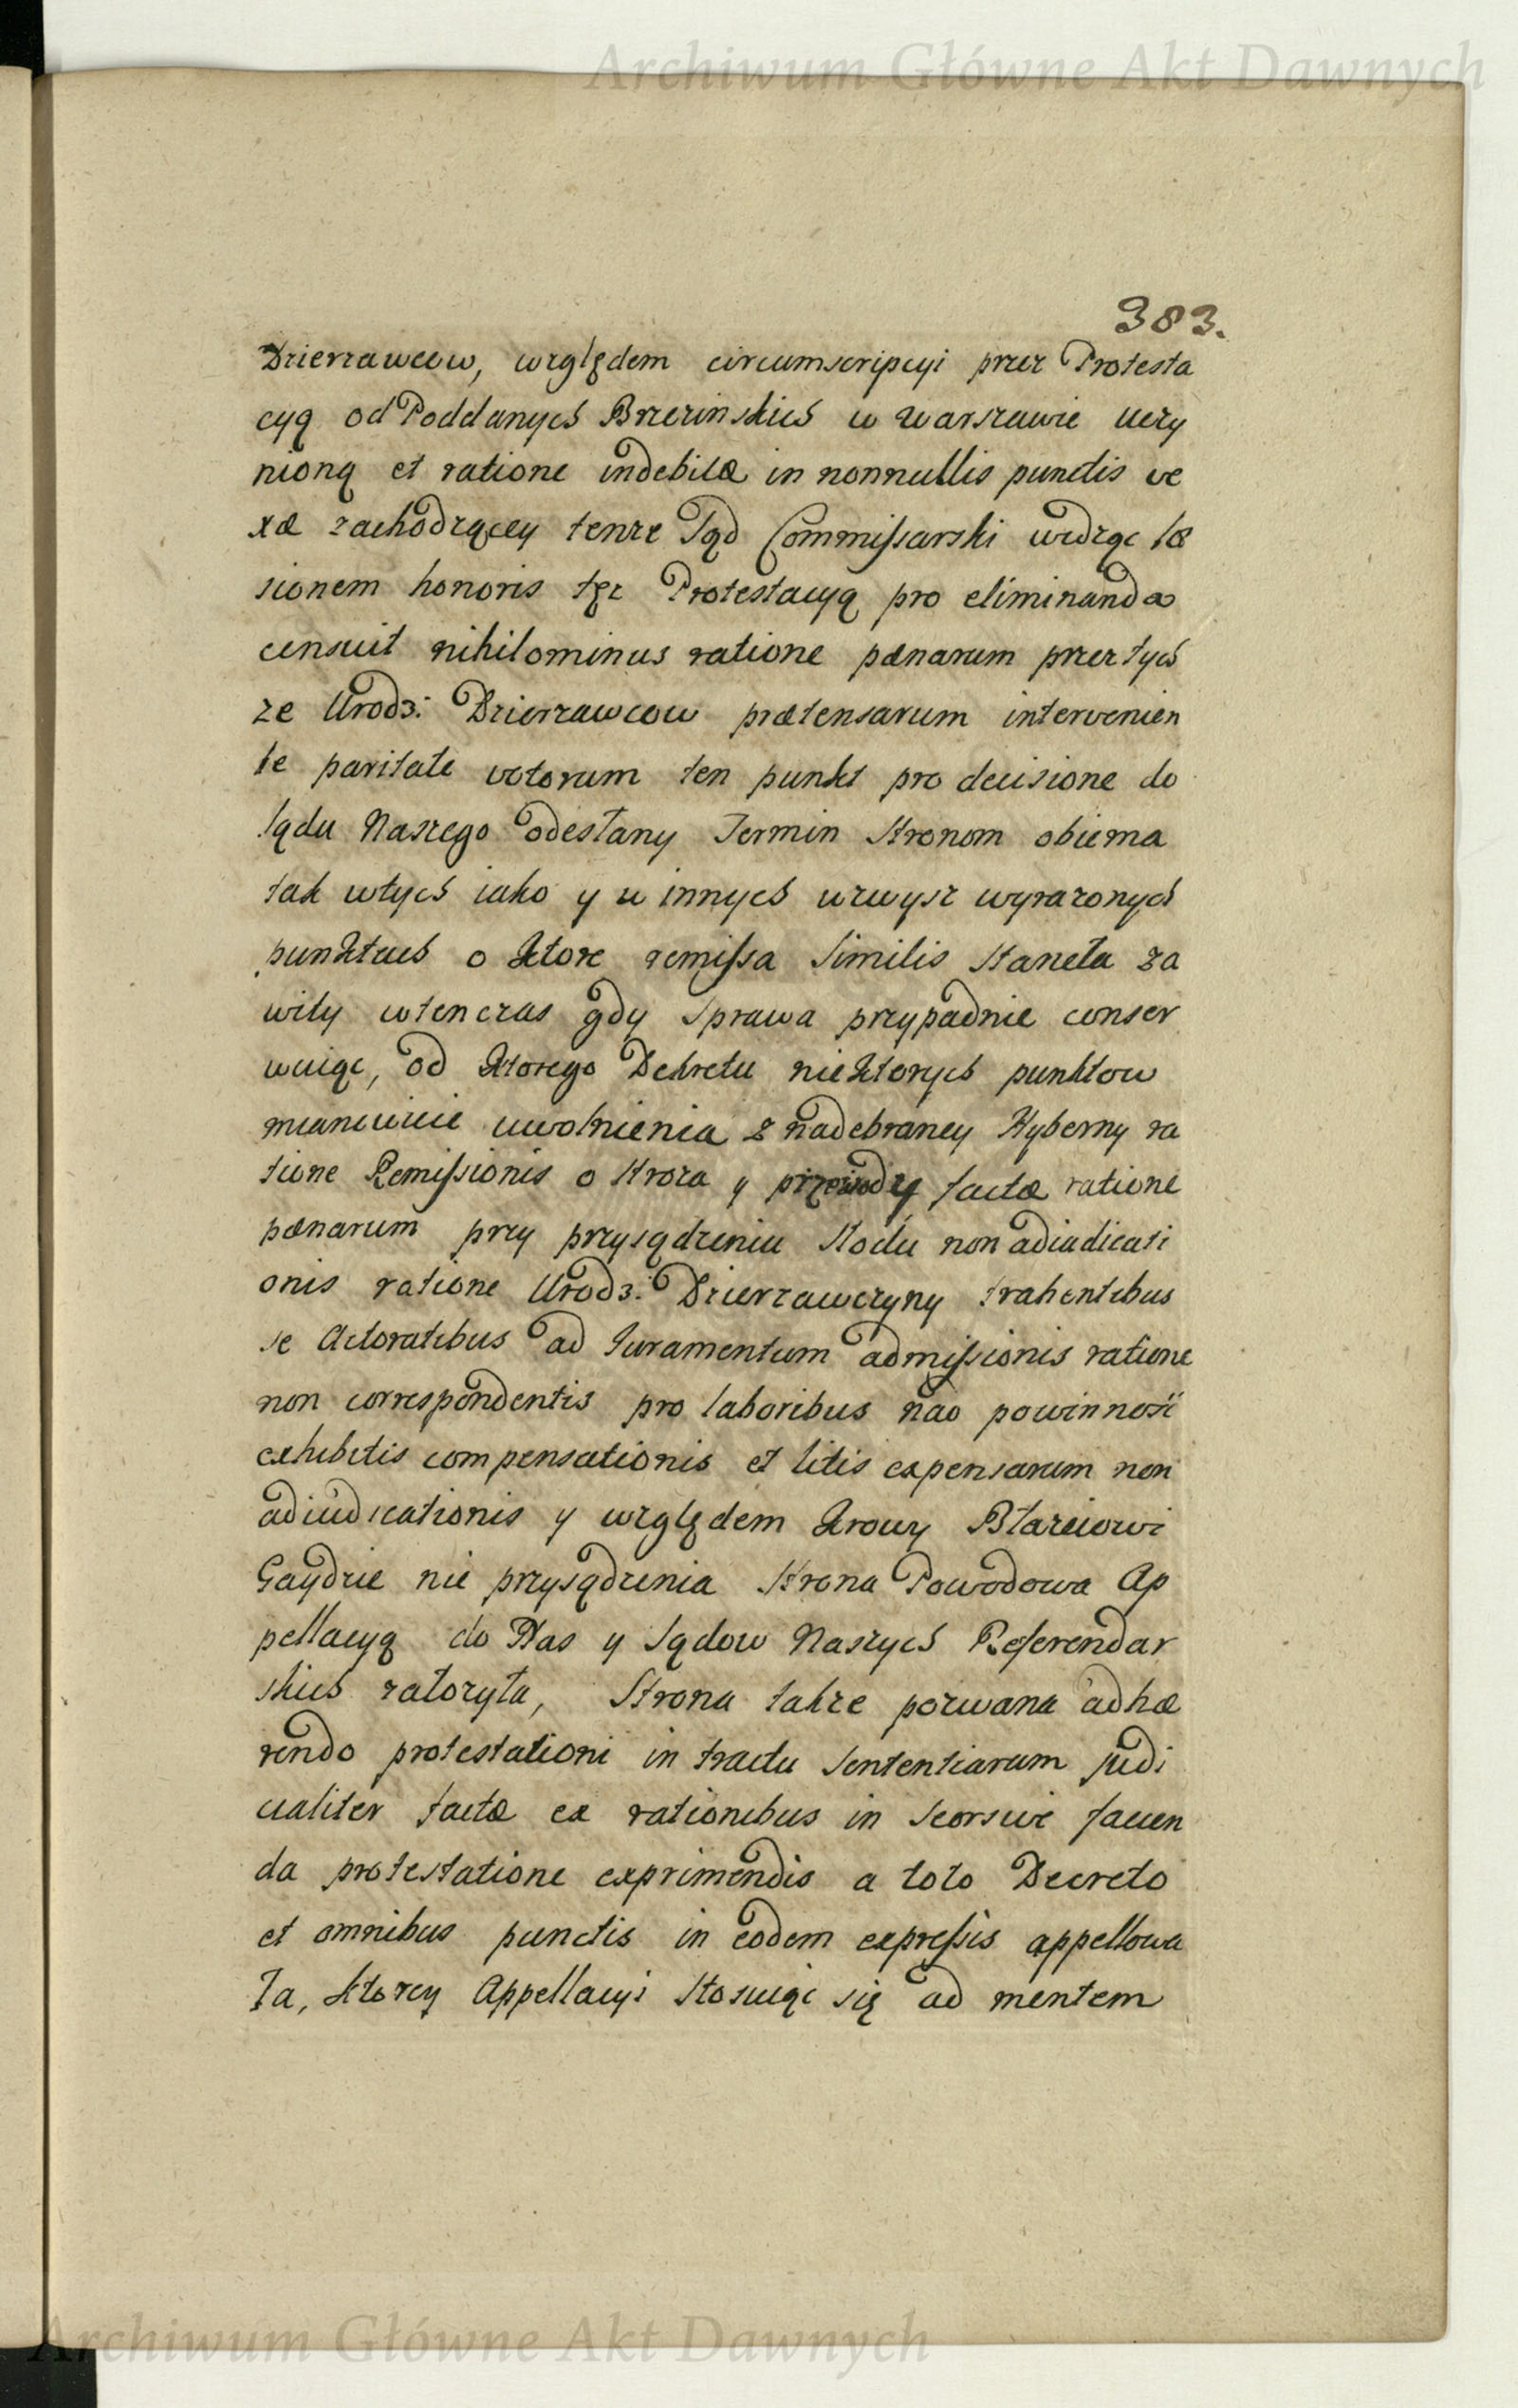 Archiwum Główne Akt Dawnych
383.
Dzierzawcow, względem circumscripcyi przez Protesta
cyą od Poddanych Brzezinskich w Warszawie uczy
nioną et ratione indebitæ in nonnullis punctis ve
xæ zachodzącey tenze Sąd Commissarski widząc læ
sionem honoris tęz Protestacyą pro eliminanda
censuit nihilominus ratione pænarum przez tych
ze Urodz: Dzierzawcow prætensarum intervenien
te paritate votorum ten punkt pro decisione do
Sądu Naszego odesłany Termin Stronom obiema
tak wtych iako y w innych wzwysz wyrazonych
punktach o ktore remissa similis stanęła za
wity wtenczas gdy sprawa przypadnie conser
wuiąc, od ktorego Dekretu niektorych punktow
mianowicie uwolnienia z nadebraney Hyberny ra
tione Remissionis o Stroza y factæ ratione
pænarum przy przysądzeniu Stodu non adiudicati
onis ratione Urodz: Dzierzawczyny trahentibus
se Actoratibus ad Juramentum admissionis ratione
non correspondentis pro laboribus nad powinność
exhibitis compensationis et litis expensarum non
adiudicationis y względem Krowy Błazeiowi
Gaydzie nie przysądzenia Strona Powodowa Ap
pellacyą do Nas y Sądow Naszych Referendar
skich załozyła, Strona takze pozwana adhæ
rendo protestationi in tractu sententiarum judi
cialiter factæ ex rationibus in seorsive facien
da protestatione exprimendis a toto Decreto
et omnibus punctis in eodem expressis appellowa
ła, ktorey Appellacyi stosuiąc się ad mentem
Archiwum Główne Akt Dawnych